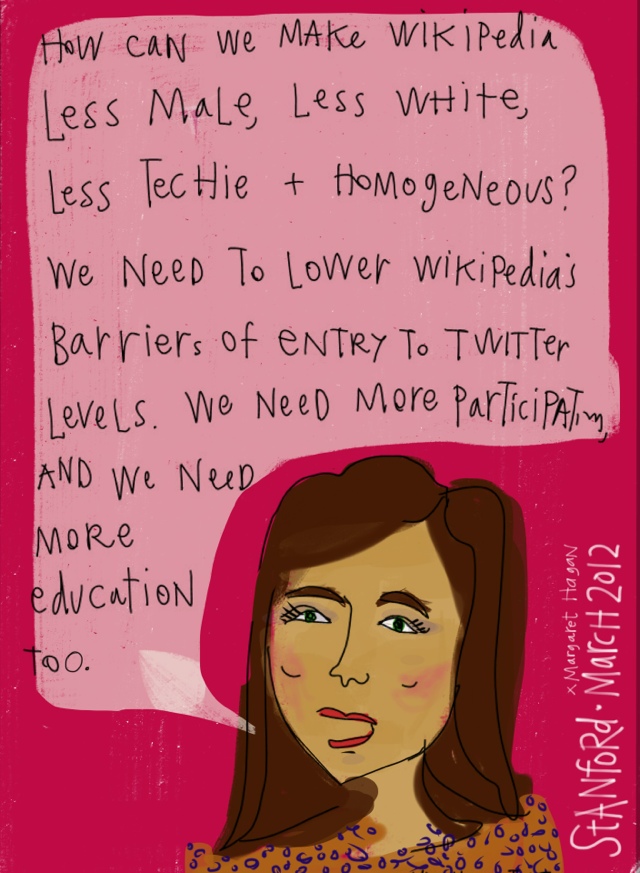 HOW CAN WE MAKE WIKIPEDIA
LESS MALE, LESS WHITE,
LESS TECHIE + HOMOGENEOUS?
WE NEED TO LOWER WIKIPEDIA'S
BARRIERS OF ENTRY TO TWITTER
LEVELS. WE NEED MORE PARTICIPATION,
AND WE NEED
MORE
EDUCATION
TOO.
x Margaret Hagan
STANFORD · MARCH 2012